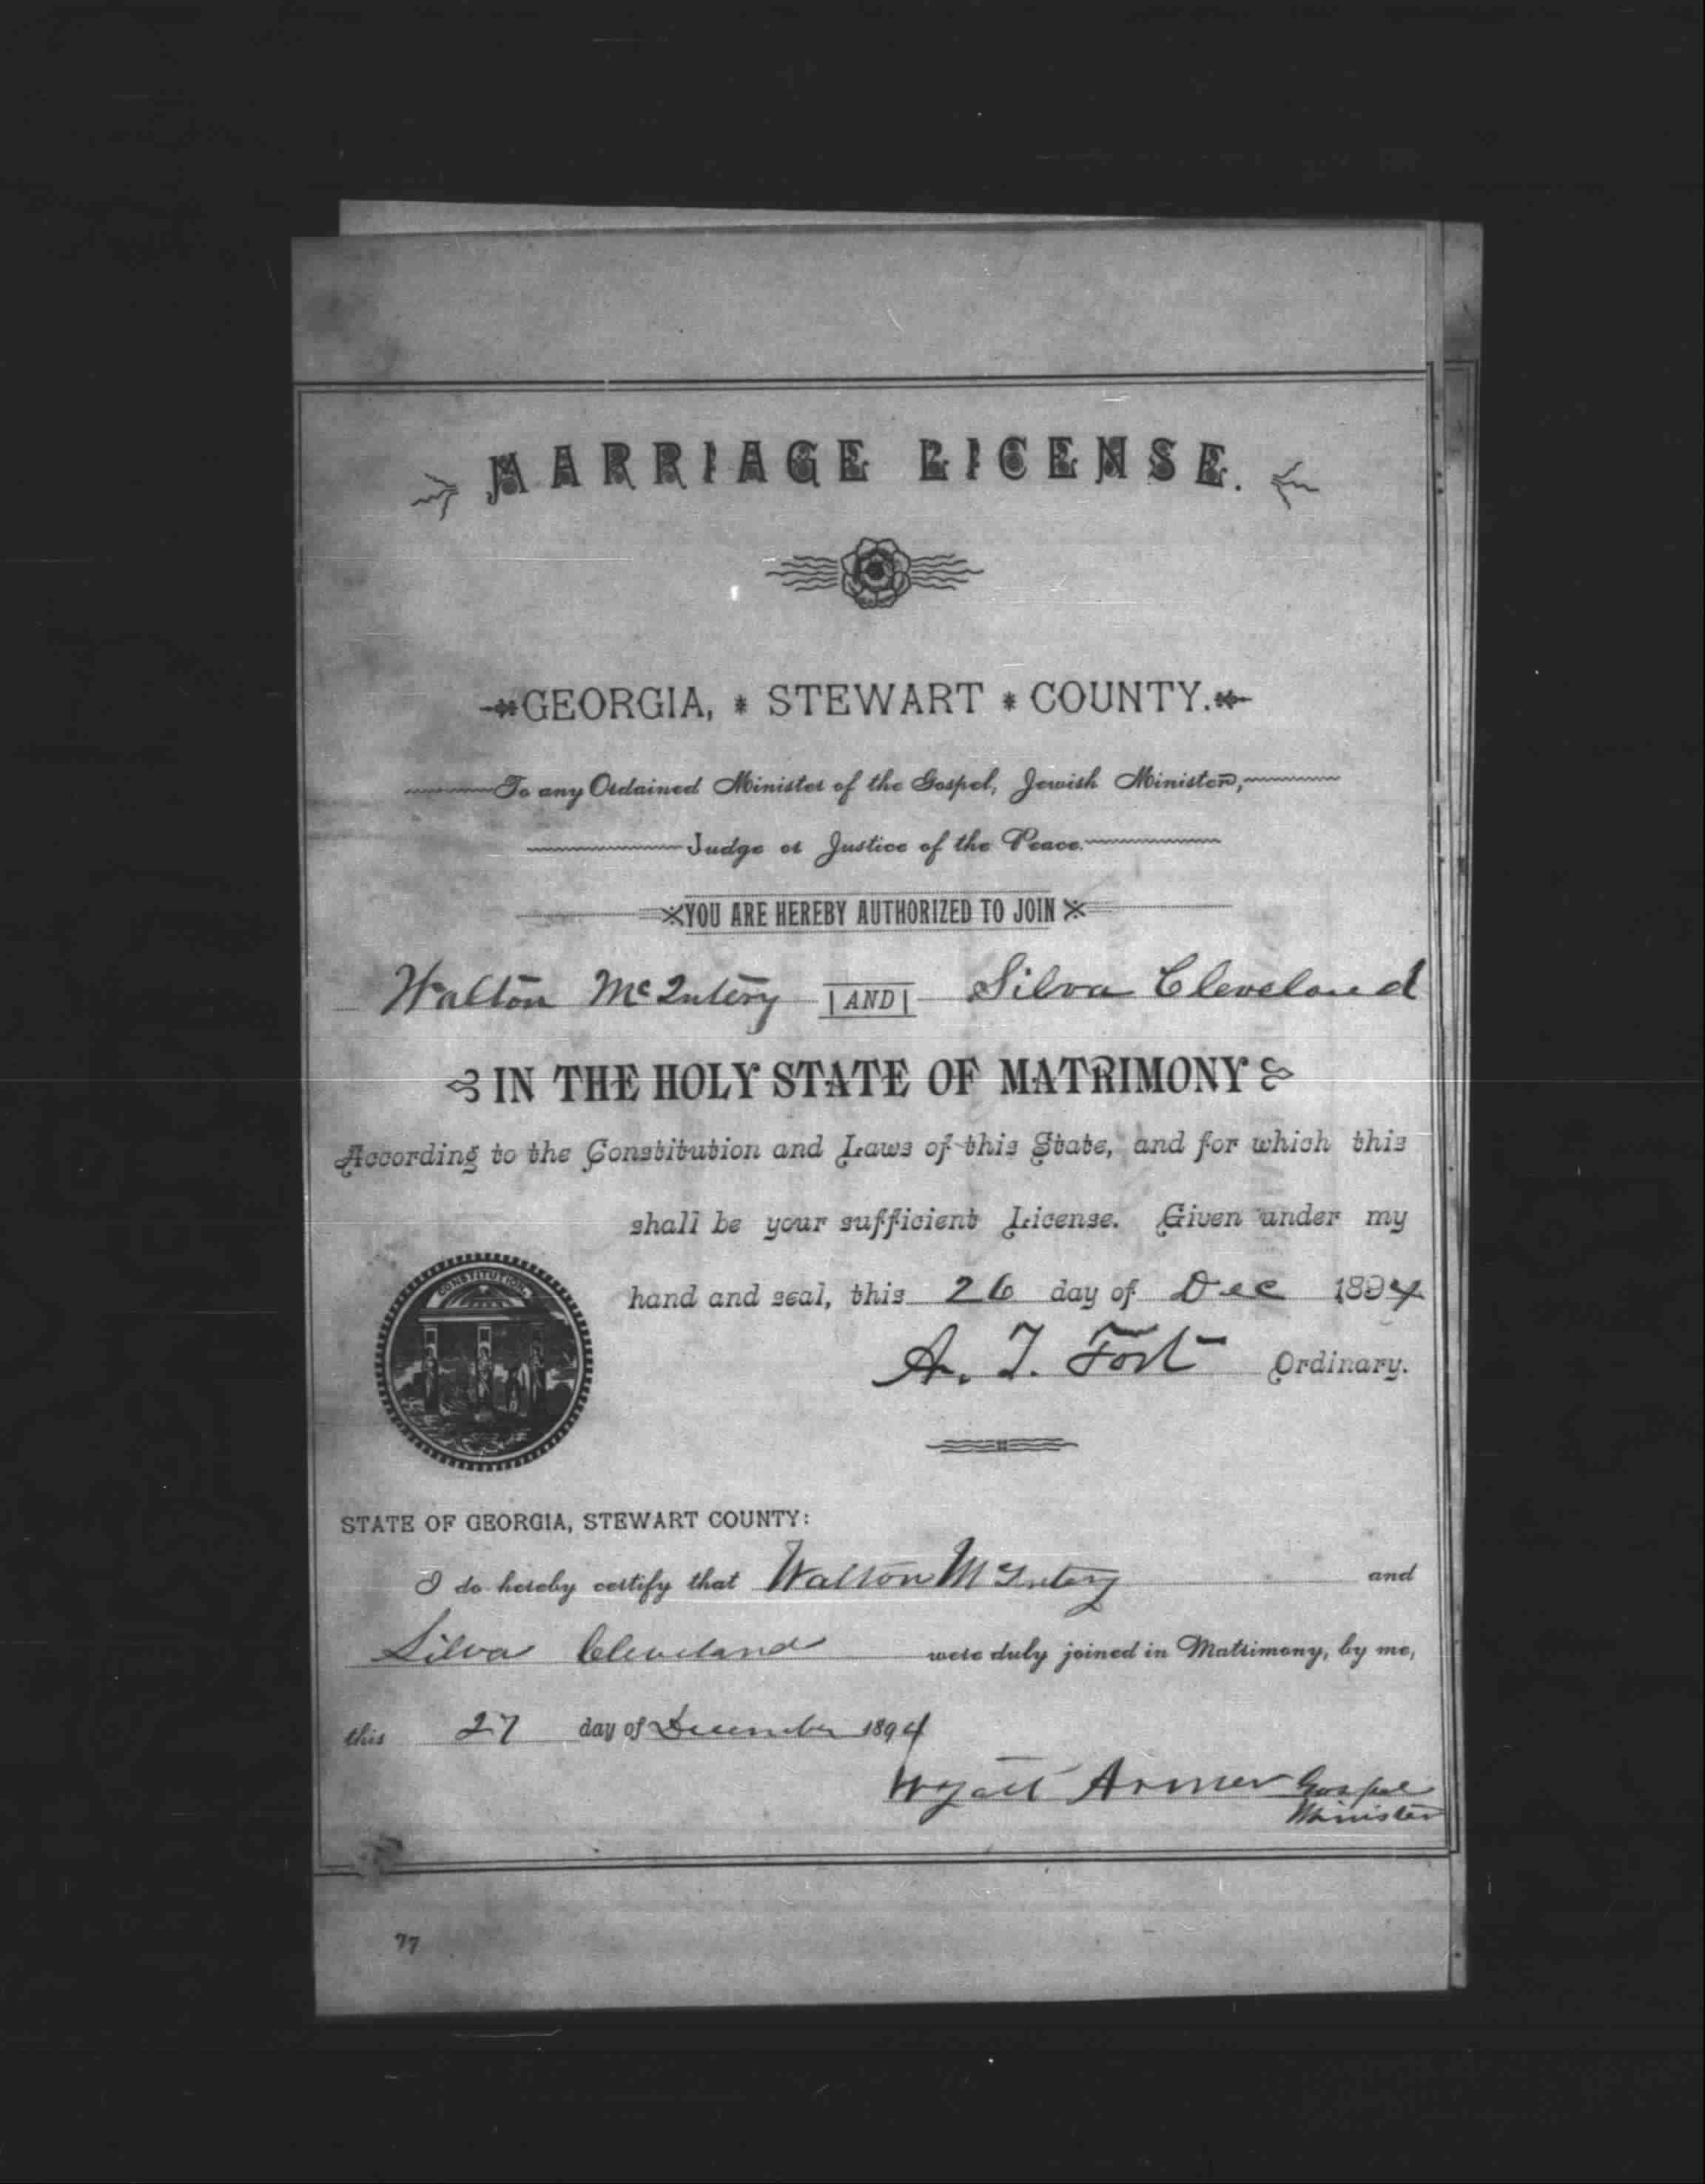 MARRIAGE LICENSE.
GEORGIA, * STEWART * COUNTY.
To any Ordained Minister of the Gospel, Jewish Minister,
Judge or Justice of the Peace.
YOU ARE HEREBY AUTHORIZED TO JOIN
Walton McIntery AND Silva Cleveland
IN THE HOLY STATE OF MATRIMONY
According to the Constitution and Laws of this State, and for which this
shall be your sufficient License. Given under my
CONSTITUTION
hand and seal, this 26 day of Dec 1894
A. T. Fort Ordinary.
STATE OF GEORGIA, STEWART COUNTY:
I do hereby certify that Walton McIntery and
Silva Cleveland were duly joined in Matrimony, by me,
this 27 day of December 1894
Wyatt Armer Gospel
Minister
77